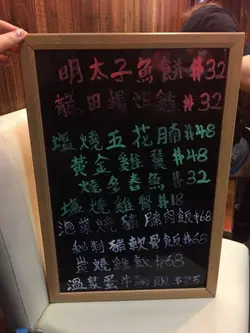 明太子魚餅 #32
龍田揚炸雞 #32
塩燒五花腩 #48
黃金雞翼 #48
燒多春魚 #32
塩燒雞腎 #18
泡菜燒豬腩肉飯 #68
秘制豬軟骨飯 #68
炭燒雞飯 #68
溫泉蛋牛飯